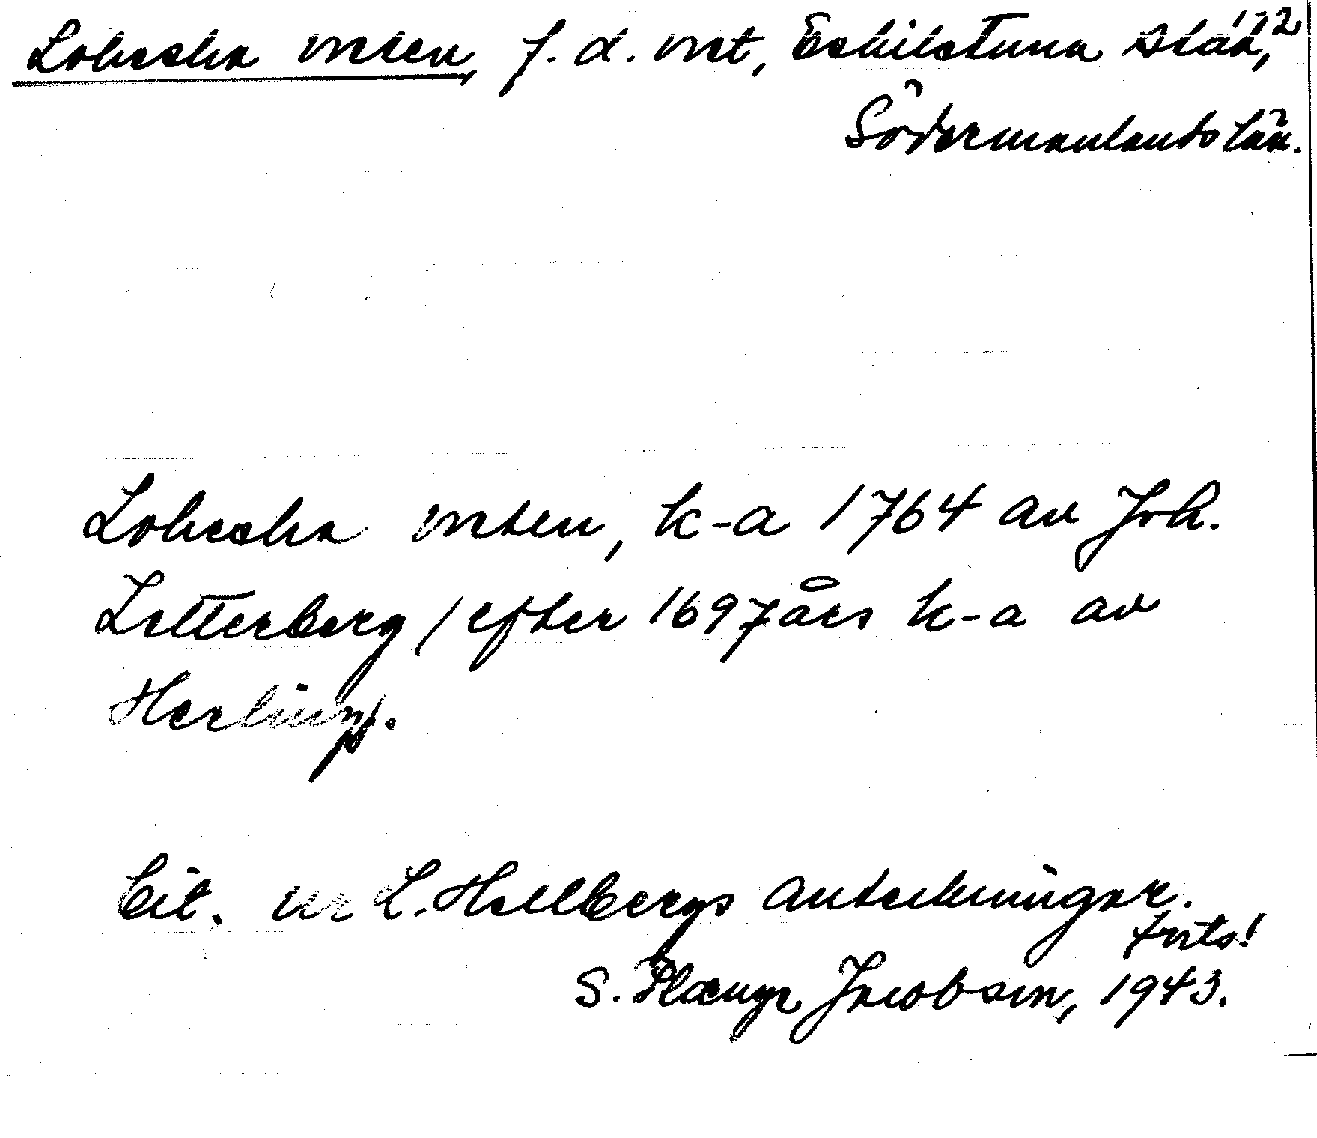 Loheska orten, f. d. ort, Eskilstuna stad,²
Södermanlands län.
Loheska orten, k-a 1764 av Joh.
Zetterberg / efter 1697 års k-a av
Herling/.
Cit. ur L. Hellbergs anteckningar.
forts!
S. Plænge Jacobson, 1943.